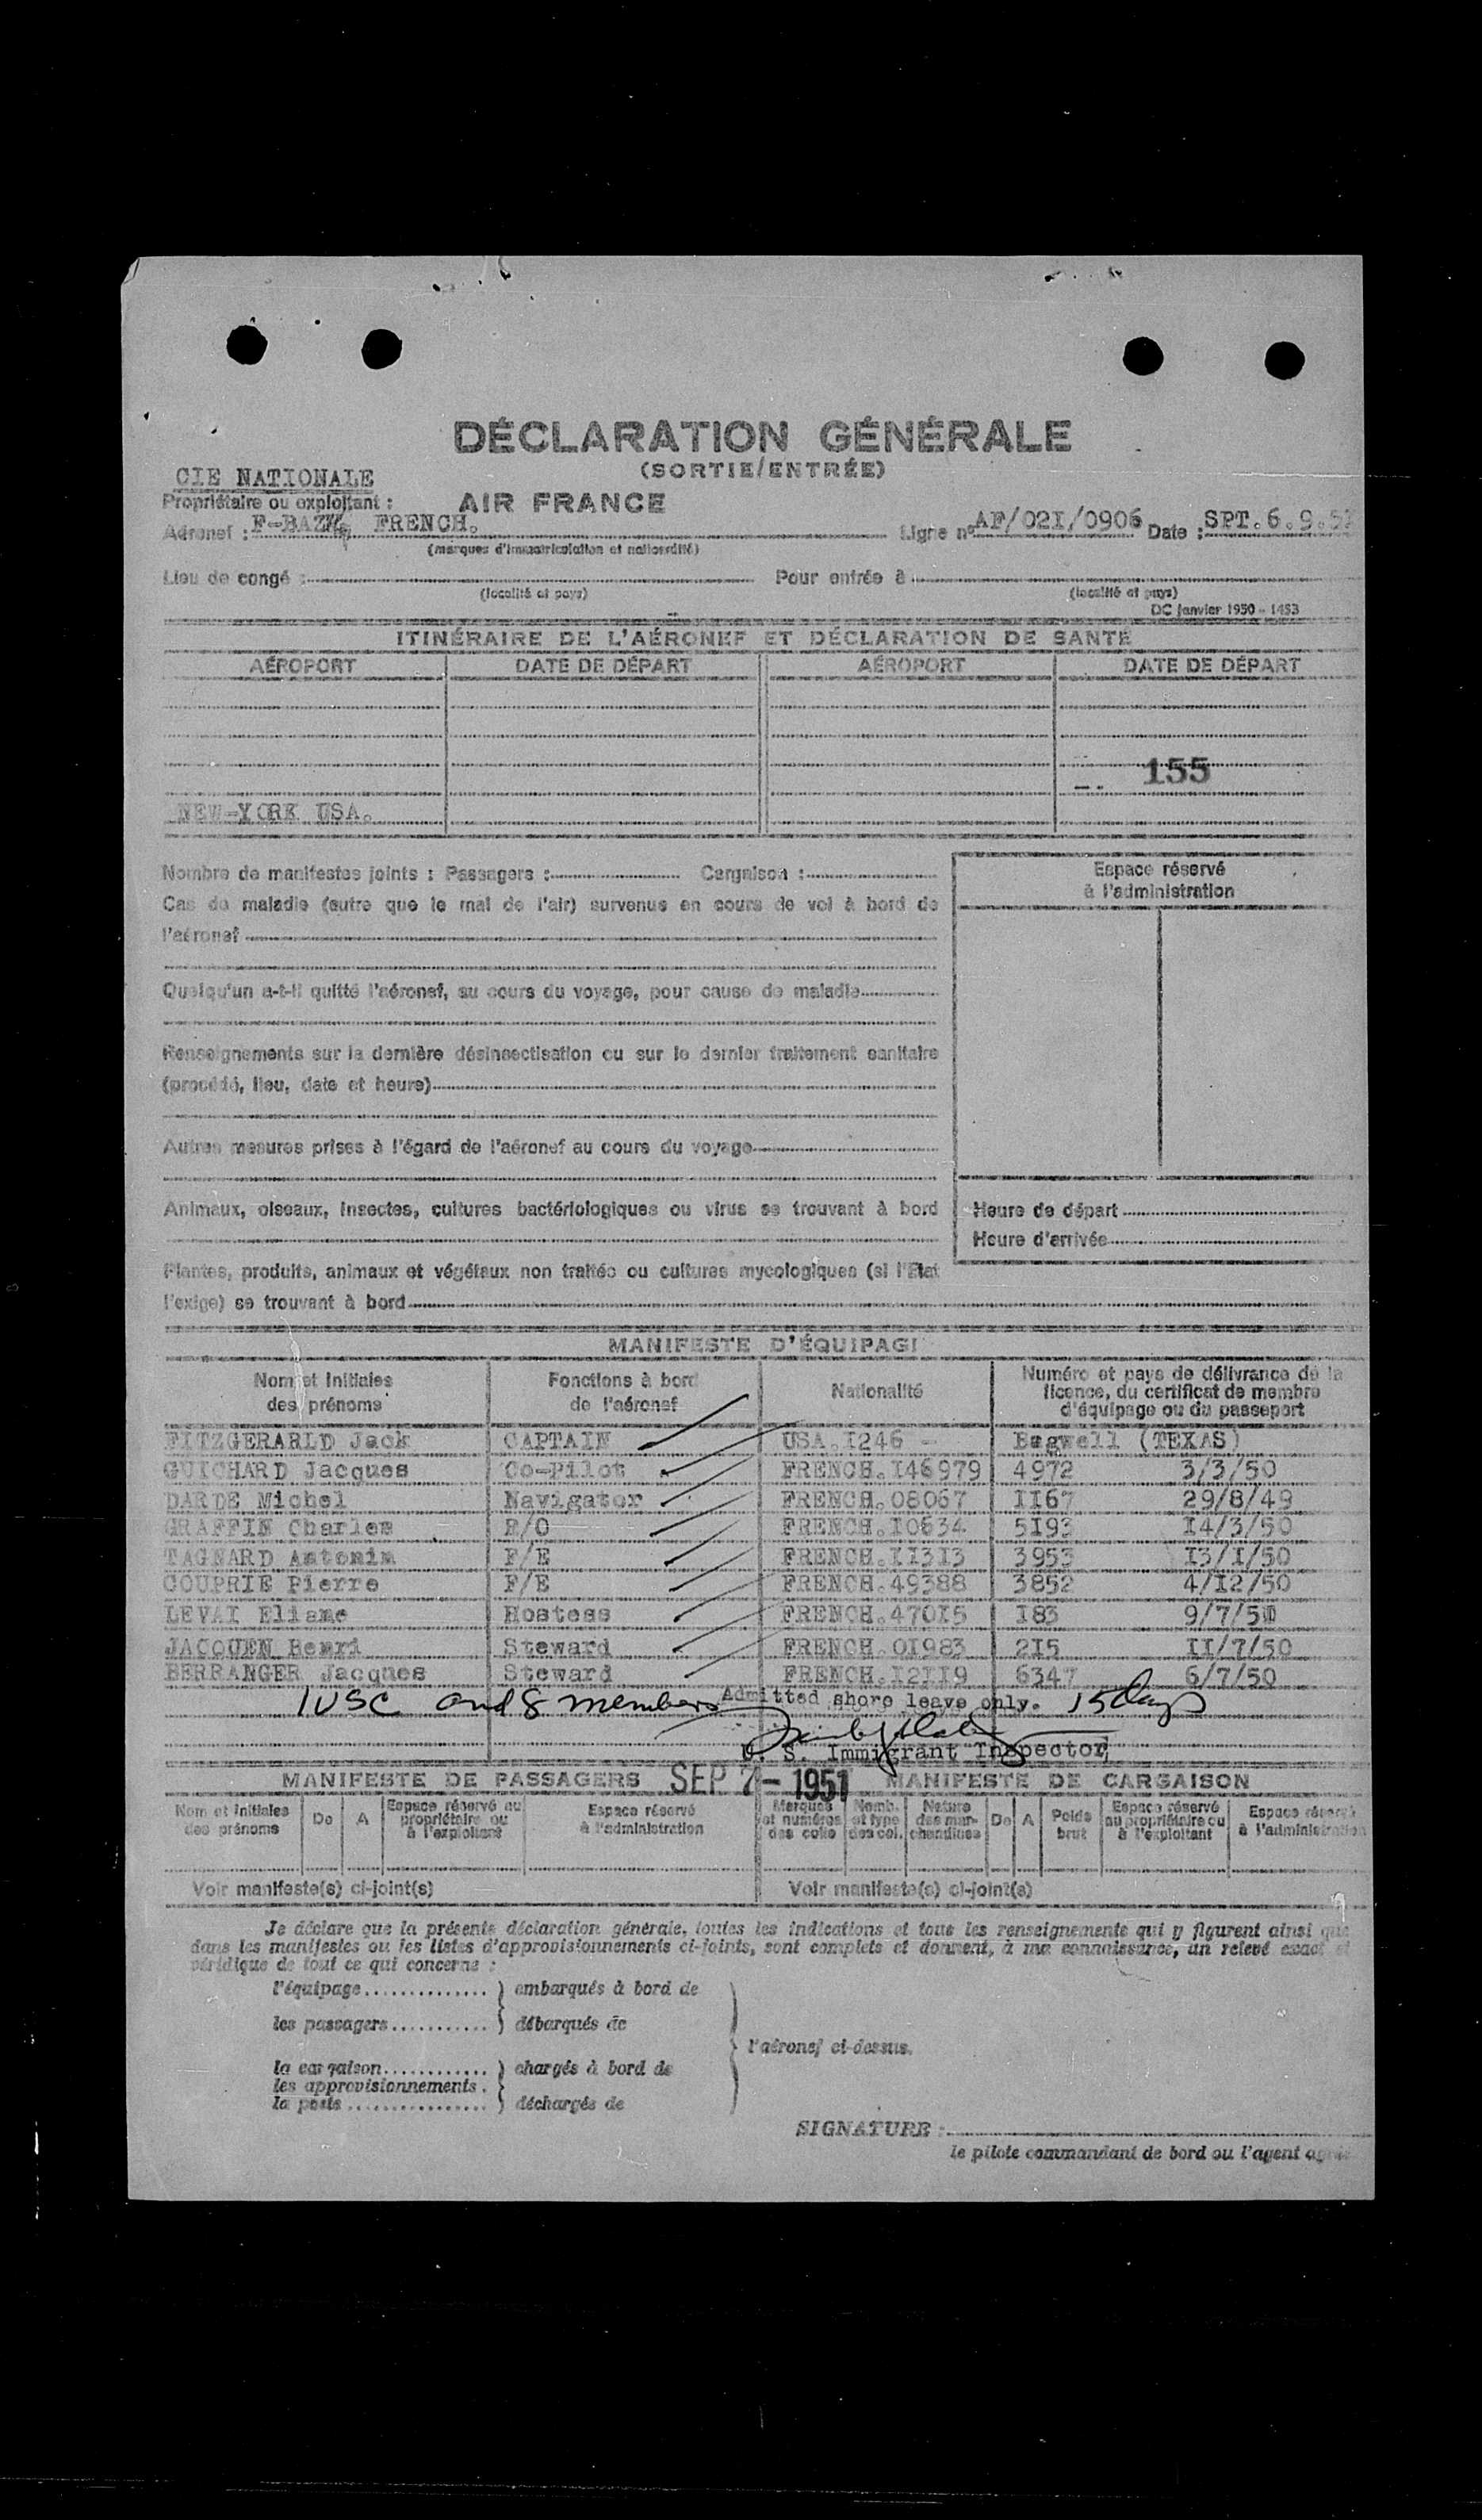 DÉCLARATION GÉNÉRALE
(SORTIE/ENTRÉE)
CIE NATIONALE
Propriétaire ou exploitant : AIR FRANCE
Aéronef : FRENCH. Ligne n° AF/02I/0906 Date : SPT.6.9.51
(marques d'immatriculation et nationalité)
Lieu de congé : Pour entrée à
(localité et pays) (localité et pays)
DC Janvier 1950 - 1453
ITINÉRAIRE DE L'AÉRONEF ET DÉCLARATION DE SANTÉ
AÉROPORT DATE DE DÉPART AÉROPORT DATE DE DÉPART
155
NEW-YORK USA.
Nombre de manifestes joints : Passagers : Cargaison :
Espace réservé
à l'administration
Cas de maladie (autre que le mal de l'air) survenus en cours de vol à bord de
l'aéronef
Quelqu'un a-t-il quitté l'aéronef, au cours du voyage, pour cause de maladie
Renseignements sur la dernière désinsectisation ou sur le dernier traitement sanitaire
(procédé, lieu, date et heure)
Autres mesures prises à l'égard de l'aéronef au cours du voyage
Animaux, oiseaux, insectes, cultures bactériologiques ou virus se trouvant à bord
Heure de départ
Heure d'arrivée
Plantes, produits, animaux et végétaux non traités ou cultures mycologiques (si l'Etat
l'exige) se trouvant à bord
MANIFESTE D'ÉQUIPAGE
Nom et initiales des prénoms Fonctions à bord de l'aéronef Nationalité Numéro et pays de délivrance de la licence, du certificat de membre d'équipage ou du passeport
FITZGERARLD Jack CAPTAIN USA.I246 - Bagwell (TEXAS)
GUICHARD Jacques Co-Pilot FRENCH.I46979 4972 3/3/50
DARDE Michel Navigator FRENCH.08067 II67 29/8/49
GRAFFIN Charles R/O FRENCH.I0634 5I93 I4/3/50
TAGNARD Antonin F/E FRENCH.II3I3 3953 I3/I/50
COUPRIE Pierre F/E FRENCH.49388 3852 4/I2/50
LEVAI Eliane Hostess FRENCH.470I5 I83 9/7/50
JACQUEN Henri Steward FRENCH.0I983 2I5 II/7/50
BERRANGER Jacques Steward FRENCH.I2II9 6347 6/7/50
1 USC and 8 members Admitted shore leave only. 15 days
U. S. Immigrant Inspector,
SEP 7 - 1951
MANIFESTE DE PASSAGERS MANIFESTE DE CARGAISON
Nom et initiales des prénoms De A Espace réservé au propriétaire ou à l'exploitant Espace réservé à l'administration Marques et numéros des colis Nomb. et type des col. Nature des marchandises De A Poids brut Espace réservé au propriétaire ou à l'exploitant Espace réservé à l'administration
Voir manifeste(s) ci-joint(s) Voir manifeste(s) ci-joint(s)
Je déclare que la présente déclaration générale, toutes les indications et tous les renseignements qui y figurent ainsi que
dans les manifestes ou les listes d'approvisionnements ci-joints, sont complets et donnent, à ma connaissance, un relevé exact et
véridique de tout ce qui concerne :
l'équipage.............. ) embarqués à bord de
les passagers........... ) débarqués de
l'aéronef ci-dessus.
la cargaison............ ) chargés à bord de
les approvisionnements .
la poste ................ ) déchargés de
SIGNATURE :
le pilote commandant de bord ou l'agent agréé